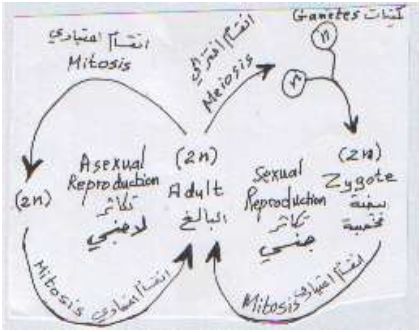 Gametes كميتات
n
n
انقسام اعتيادي
Mitosis
انقسام اختزالي
Meiosis
(2n)
Asexual
Reproduction
تكاثر
لاجنسي
(2n)
Adult
البالغ
Sexual
Reproduction
تكاثر
جنسي
(2n)
Zygote
بيضة
مخصبة
Mitosis انقسام اعتيادي
Mitosis انقسام اعتيادي